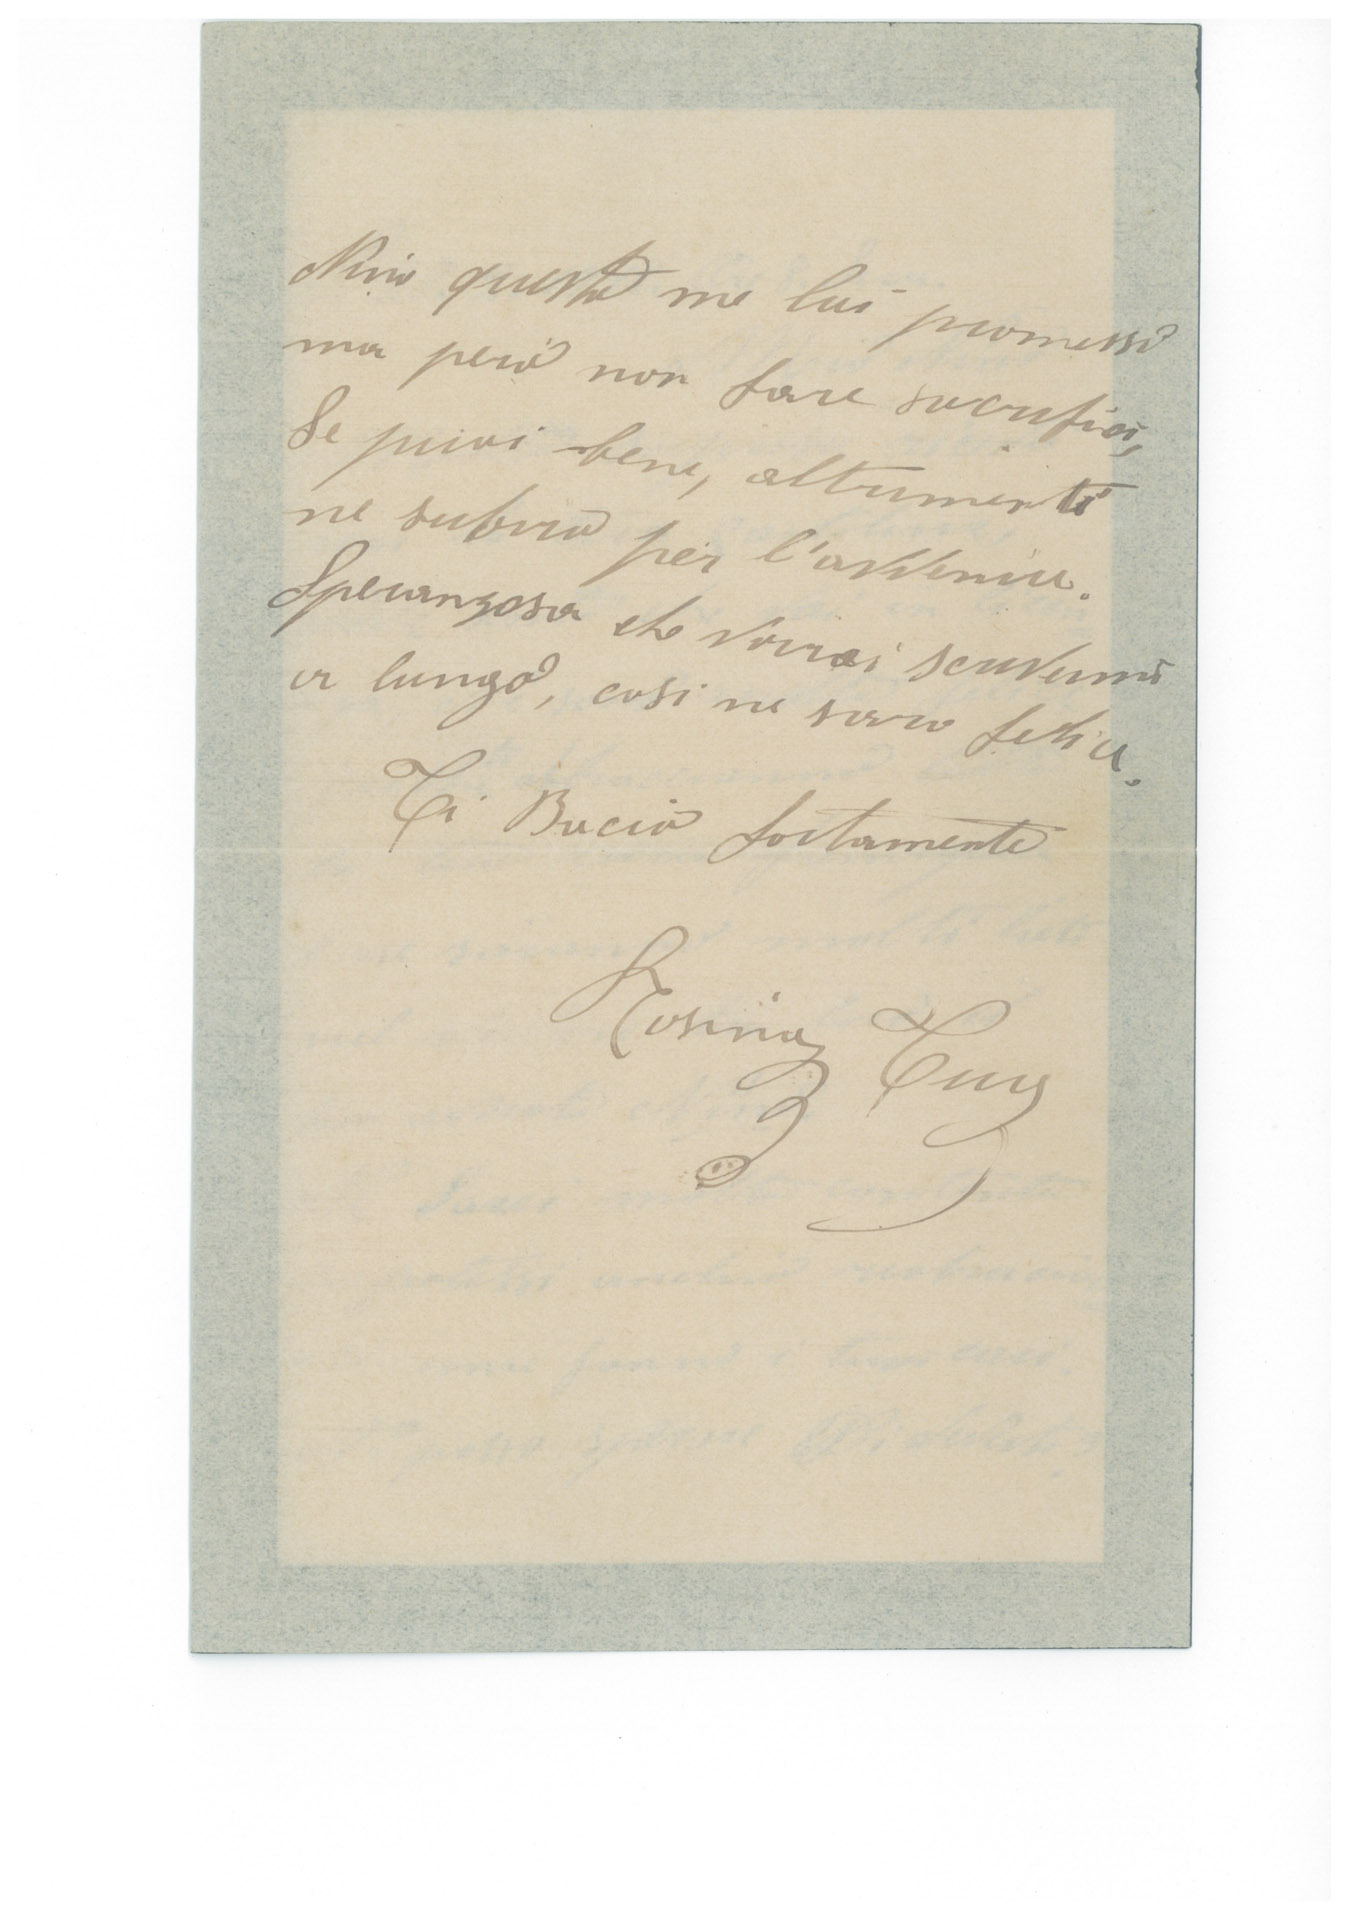 Nino questo me lai promesso
ma però non fare sacrifici,
Se puoi bene, altrimenti
ne subirò per l'avvenire.
Speranzosa che vorrai scrivermi
a lungo, cosi ne sarò felice.
Ti Bacio fortamente
Rosina Tua